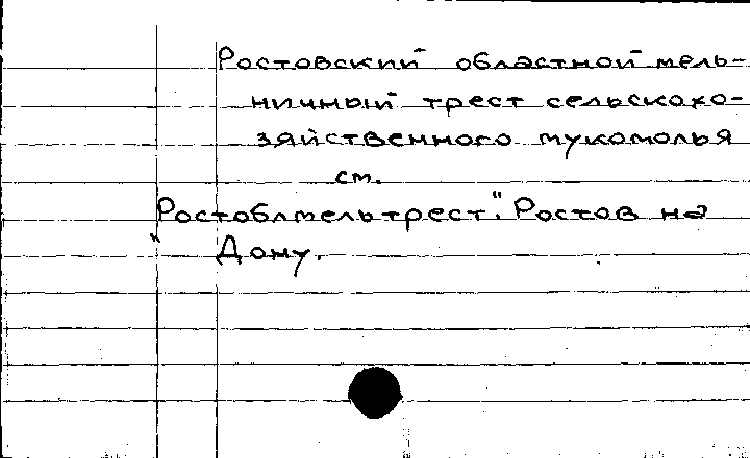 Ростовский областной мель-
ничный трест сельскохо-
зяйственного мукомолья
см.
"Ростоблмельтрест". Ростов на
Дону.